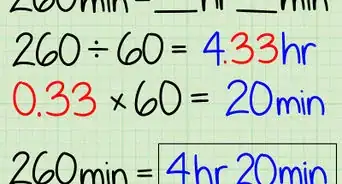 260min = __hr __min
260 ÷ 60 = 4.33hr
0.33 × 60 = 20min
260min = 4hr 20min